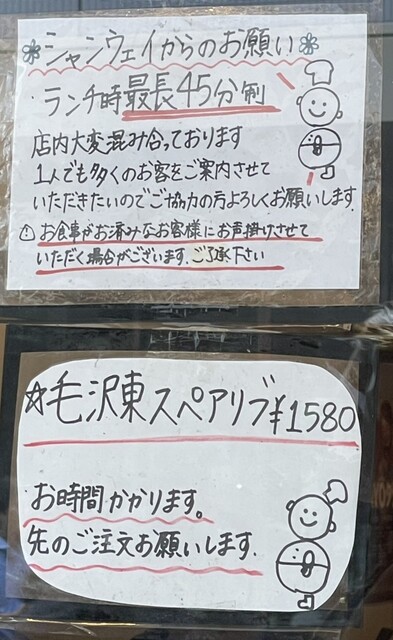 ❀シャンウェイからのお願い❀
ランチ時最長45分制
店内大変混み合っております
1人でも多くのお客をご案内させて
いただきたいのでご協力の方よろしくお願いします.
① お食事がお済みなお客様にお声掛けさせて
いただく場合がございます.ご了承下さい
☆毛沢東スペアリブ¥1580
お時間かかります。
先のご注文お願いします.